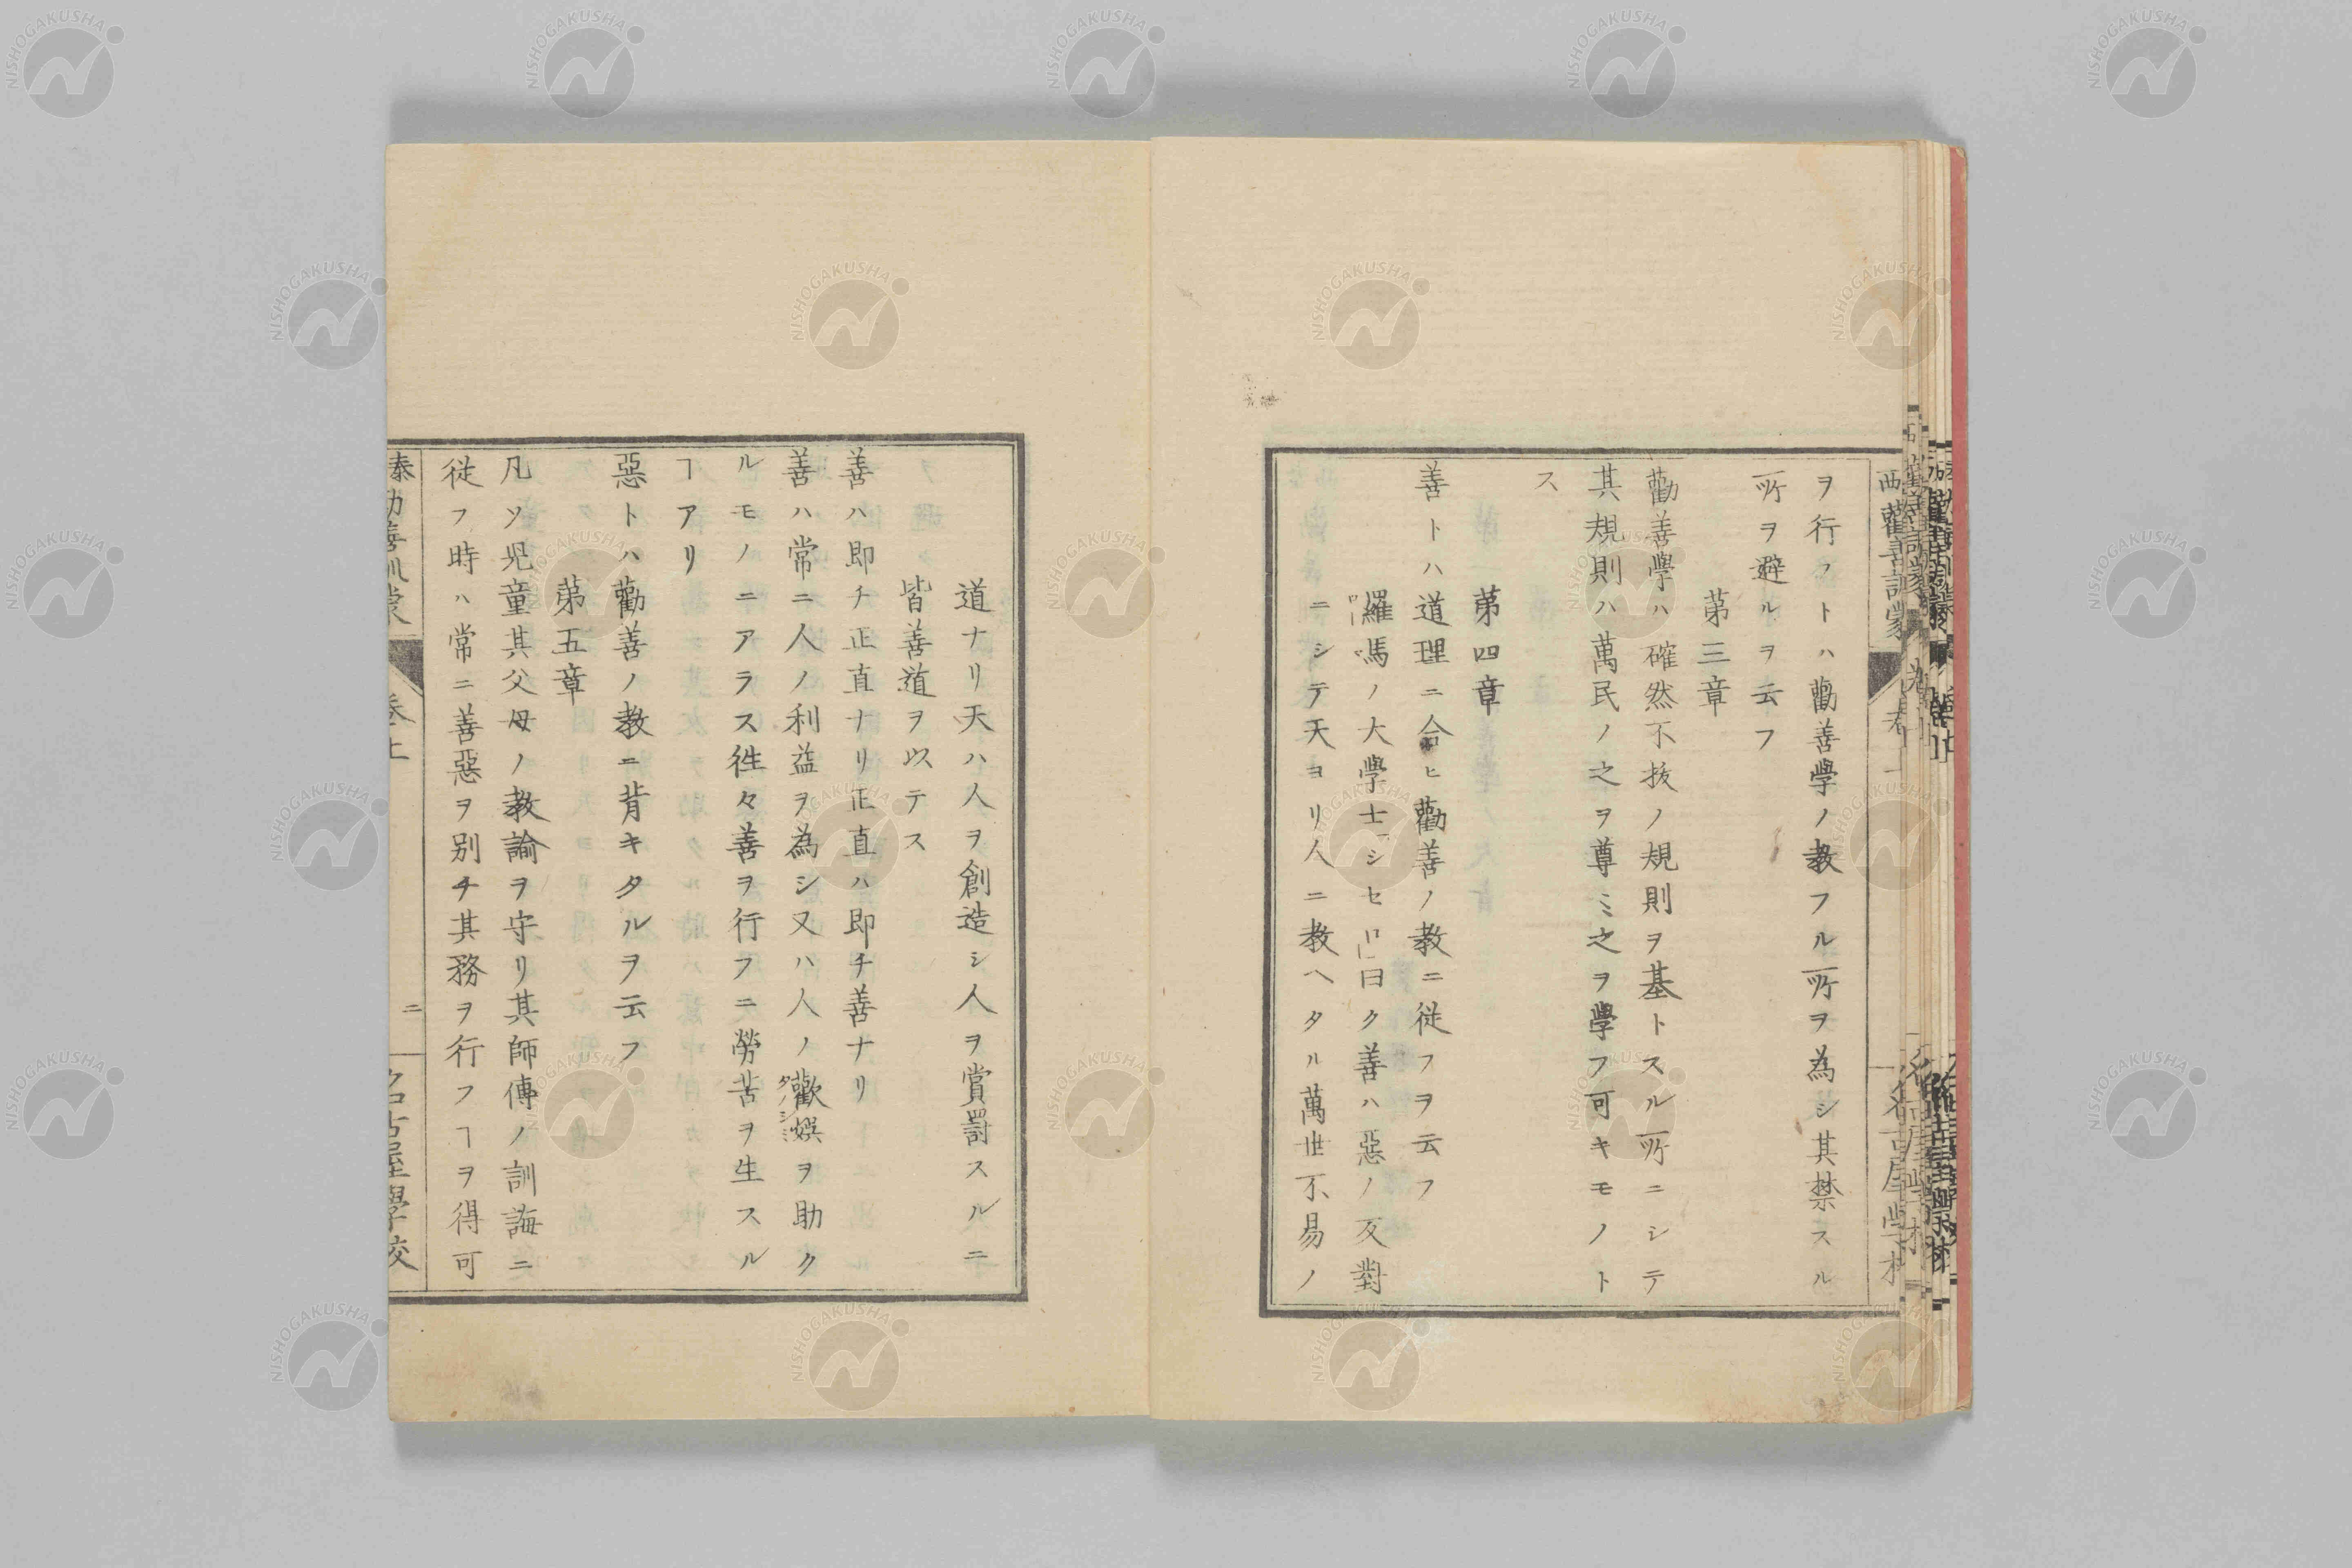 ヲ行フトハ勸善學ノ教フル所ヲ為シ其禁スル
所ヲ避ルヲ云フ
第三章
勸善學ハ確然不抜ノ規則ヲ基トスル所ニシテ
其規則ハ萬民ノ之ヲ尊ミ之ヲ學フ可キモノト
ス
第四章
善トハ道理ニ合ヒ勸善ノ教ニ従フヲ云フ
羅馬ノ大學士「シセロ」曰ク善ハ惡ノ反對
ニシテ天ヨリ人ニ教ヘタル萬世不易ノ
道ナリ天ハ人ヲ創造シ人ヲ賞罰スルニ
皆善道ヲ以テス
善ハ即チ正直ナリ正直ハ即チ善ナリ
善ハ常ニ人ノ利益ヲ為シ又ハ人ノ歡娯ヲ助ク
ルモノニアラス徃々善ヲ行フニ勞苦ヲ生スル
ヿアリ
惡トハ勸善ノ教ニ背キタルヲ云フ
第五章
凡ソ児童其父母ノ教諭ヲ守リ其師傳ノ訓誨ニ
従フ時ハ常ニ善惡ヲ別チ其務ヲ行フヿヲ得可
泰勸善訓蒙 巻上 二 名古屋學校
NISHOGAKUSHA